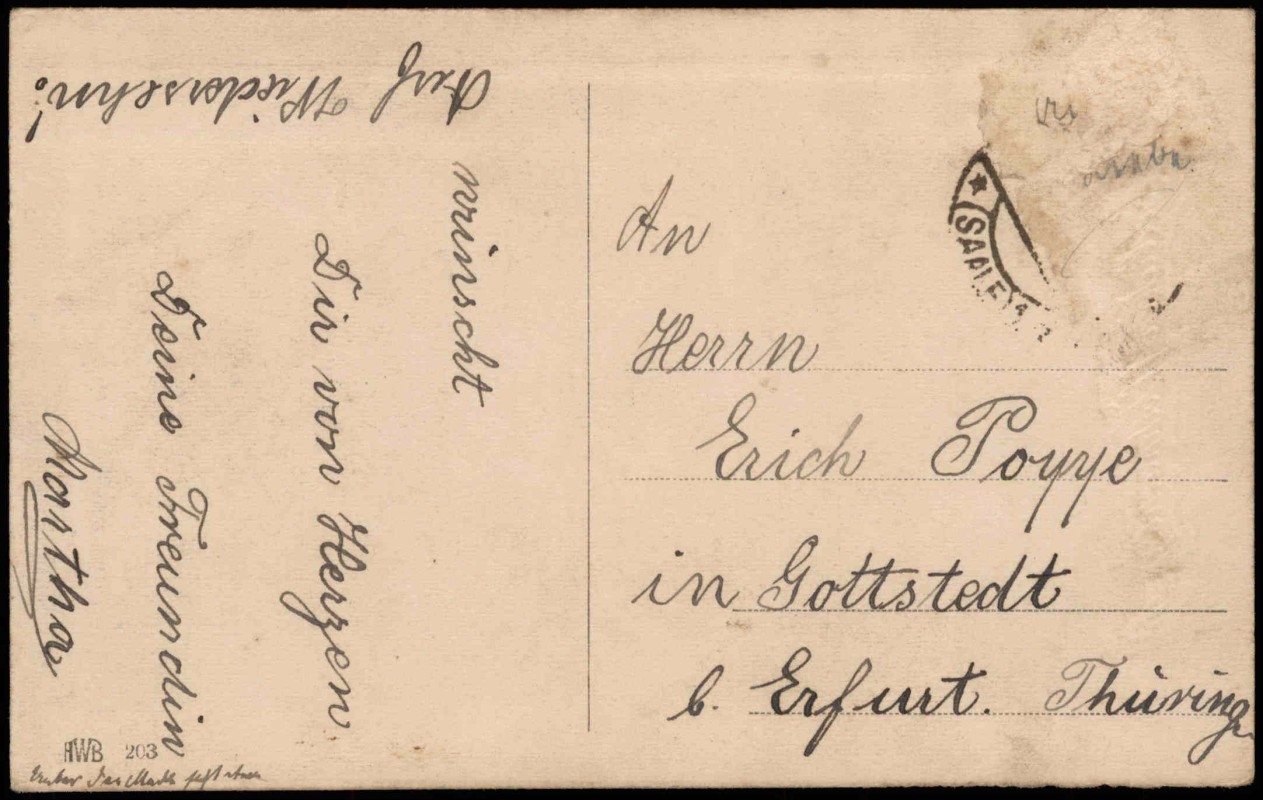 wünscht
Dir von Herzen
Deine Freundin
Martha
Auf Wiedersehn!
HWB 203
(SAALE)
An
Herrn
Erich Poppe
in Gottstedt
b. Erfurt. Thüring.